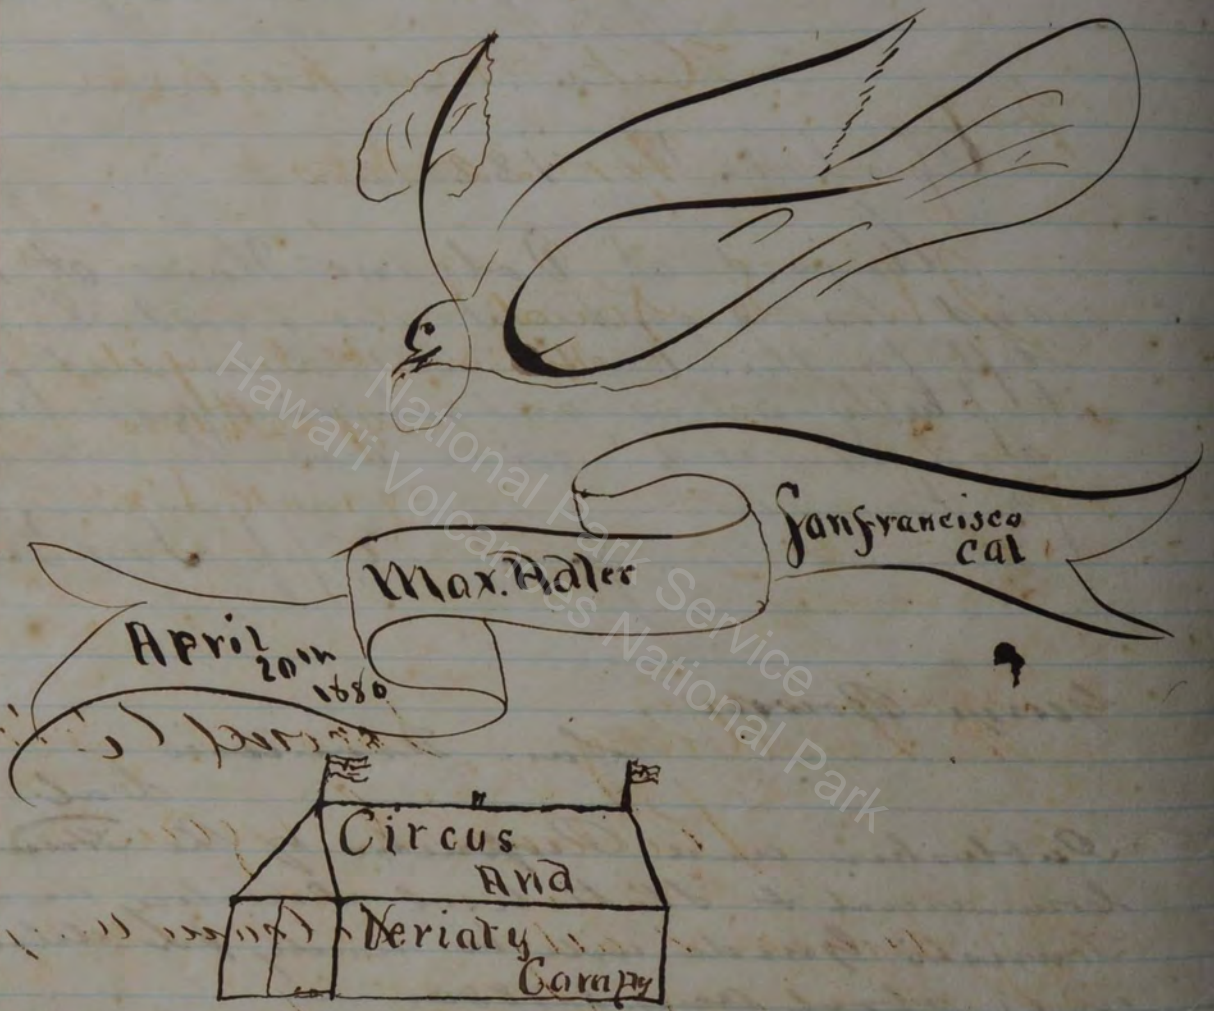 April
20th
1880
Max. Adler
Sanfrancisco
Cal
Circus
And
Veriaty
Compy
National Park Service
Hawai'i Volcanoes National Park